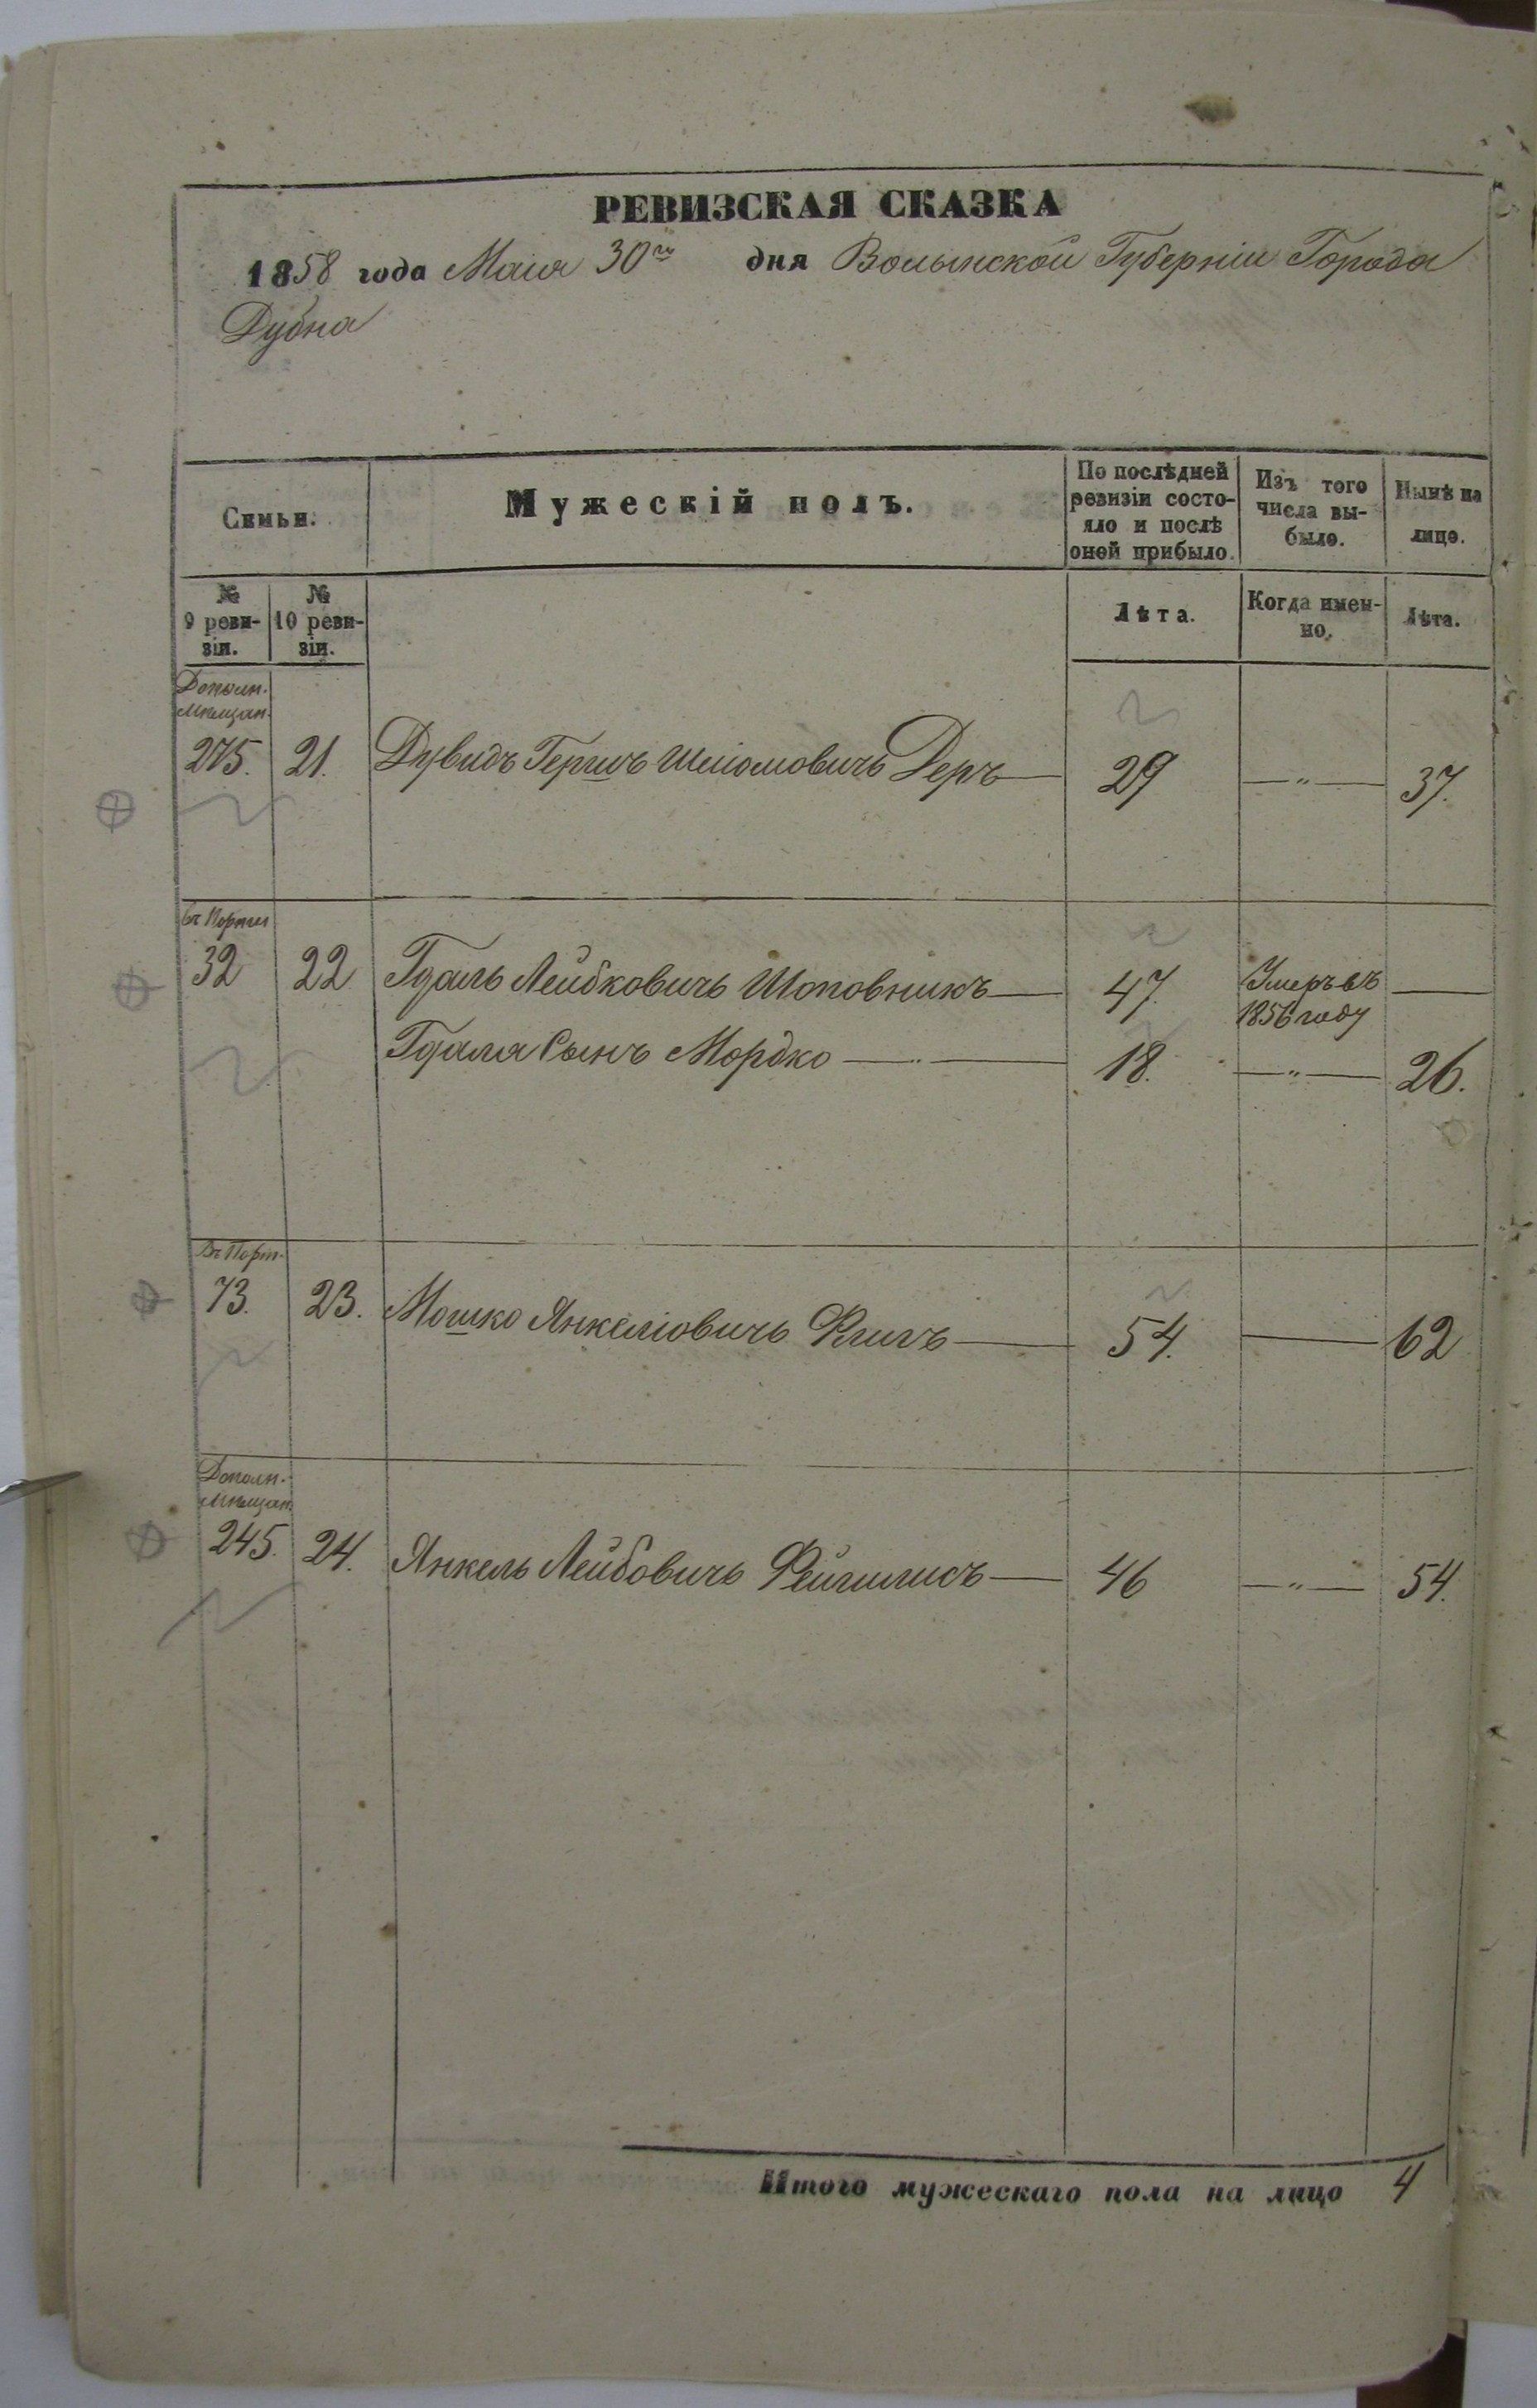 РЕВИЗСКАЯ СКАЗКА
1858 года Маия 30го дня Волынской Губерніи Города
Дубна
Симьи.
Мужескій полъ.
По послѣдней ревизіи состо-
яло и послѣ
оной прибыло.
Изъ того
числа вы-
было.
Нынѣ на
лицо.
№
9 реви-
зіи.
№
10 реви-
зіи.
Лѣта.
Когда имен-
но.
Лѣта.
Дополн.
мѣщан.
275. 21. Дувидъ Гершъ Шліомовичъ Деръ — 29 — " — 37.
32 22 Гдаль Лейбковичъ Шоповникъ — 47. Умеръ въ —
1856 году
Гдаля Сынъ Мордко — 18. — " — 26.
73. 23. Мошко Янкеліовичъ — 54. — 62
Дополн.
мѣщан.
245. 24. Янкель Лейбовичъ — 46 — " — 54.
Итого мужескаго пола на лицо 4